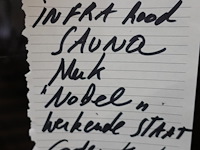 iNFRA Rood
SAUNA
Merk
"NoBel„
Werkende STAAT